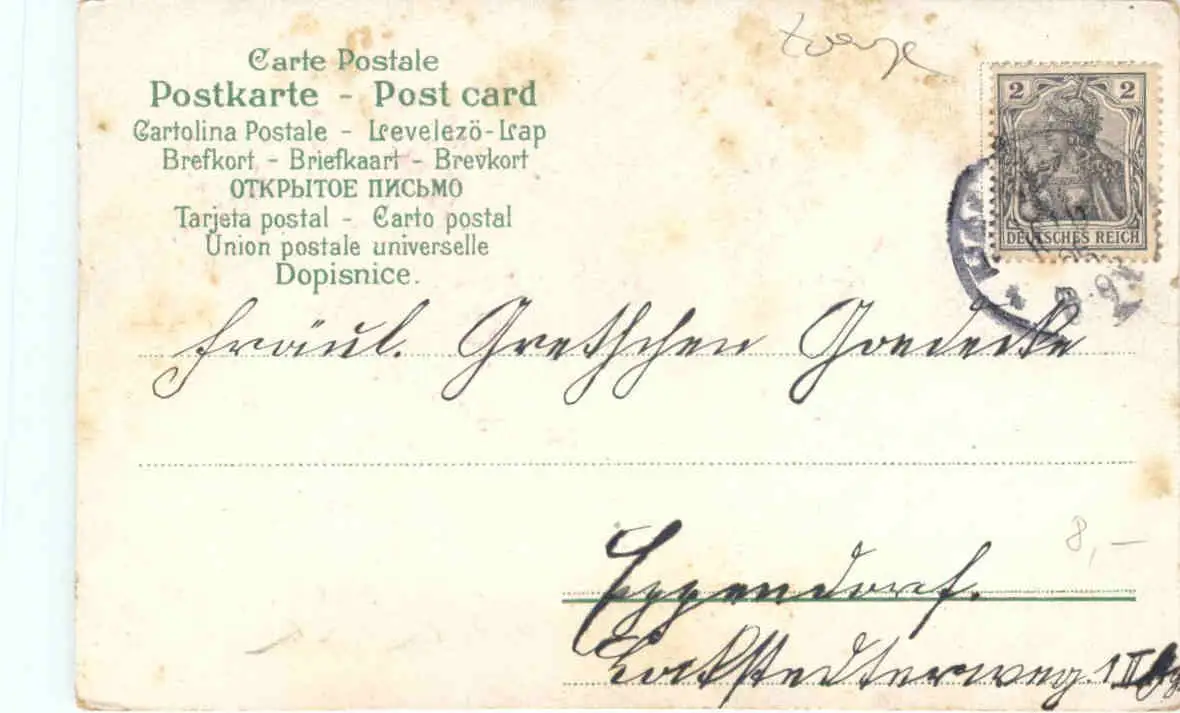 Carte Postale
Postkarte - Post card
Cartolina Postale - Levelezö-Lap
Brefkort - Briefkaart - Brevkort
ОТКРЫТОЕ ПИСЬМО
Tarjeta postal - Carto postal
Union postale universelle
Dopisnice.
2 2
DEUTSCHES REICH
Fräul. Gretschen Goedecke
8,—
Eppendorf.
Lockstedterweg. 1 II